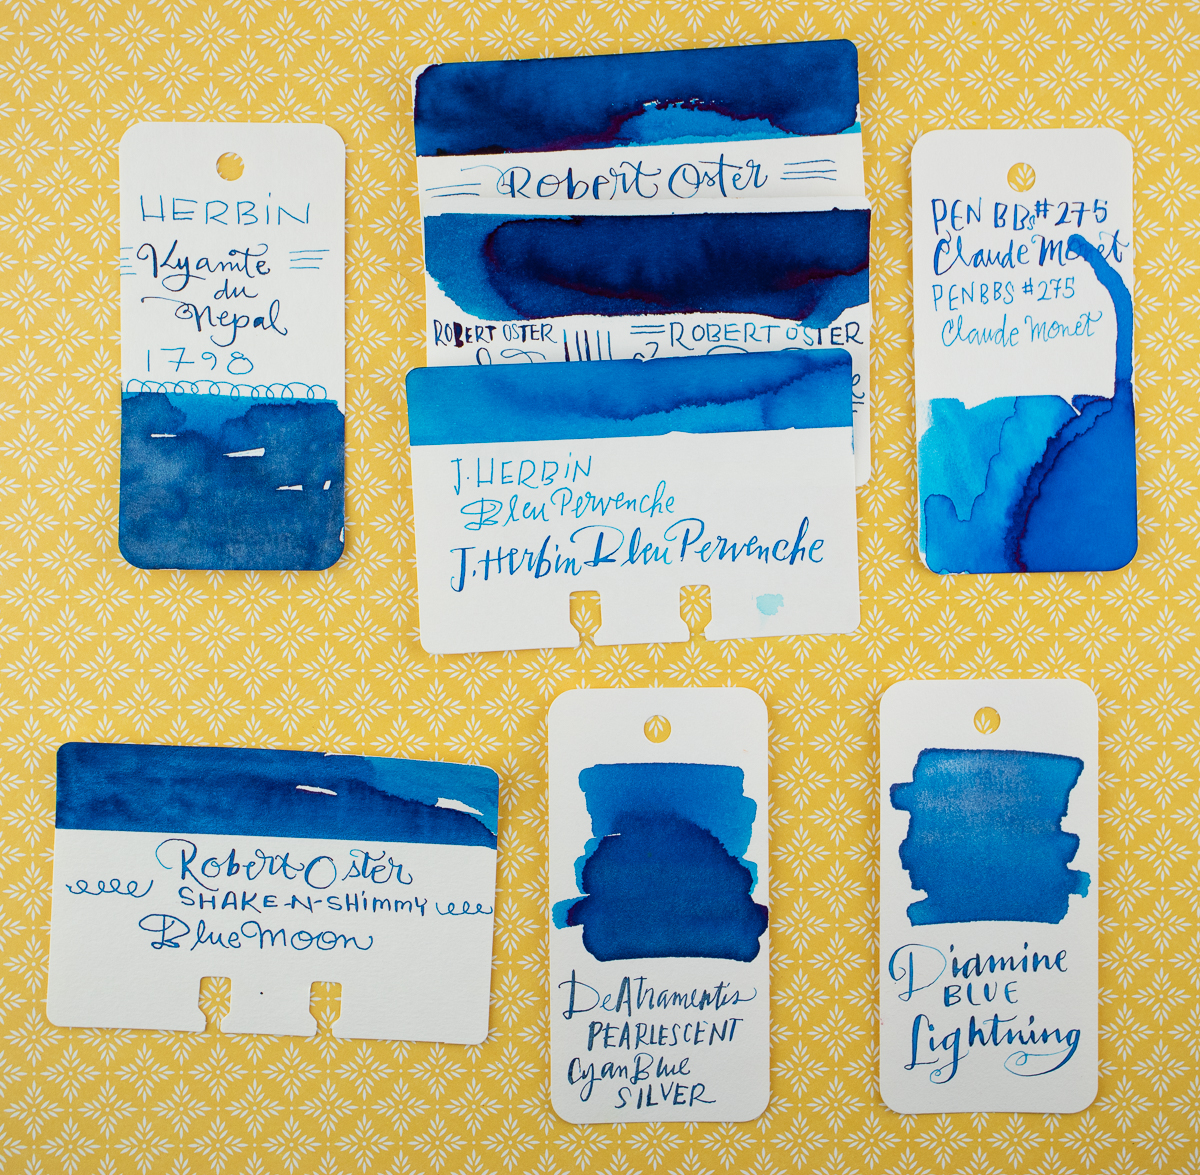 HERBIN
Kyanite
du
Nepal
1798
Robert Oster
ROBERT OSTER
ROBERT OSTER
J. HERBIN
Bleu Pervenche
J. Herbin Bleu Pervenche
PEN BBS #275
Claude Monet
PENBBS #275
Claude Monet
Robert Oster
SHAKE-N-SHIMMY
Blue Moon
DeAtramentis
PEARLESCENT
Cyan Blue
SILVER
Diamine
BLUE
Lightning